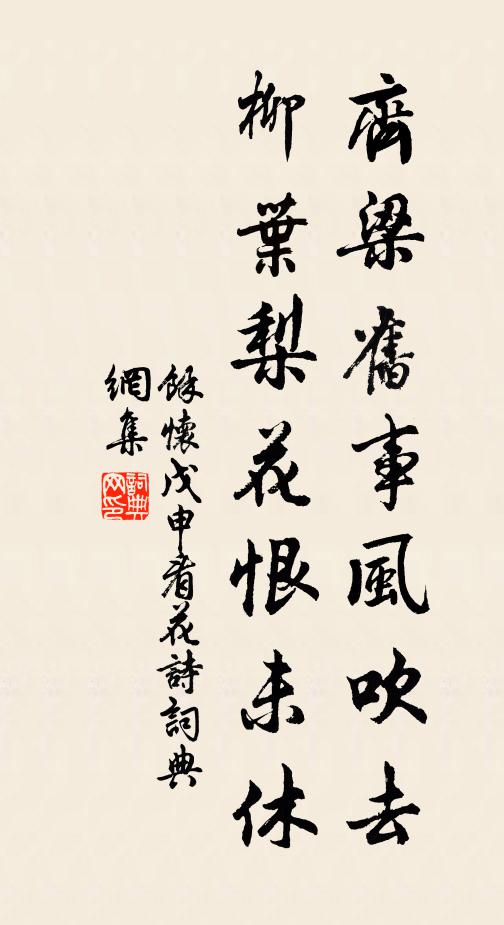 齊梁舊事風吹去
柳葉梨花恨未休
餘懷戊申看花詩詞典
網集
詞典網印